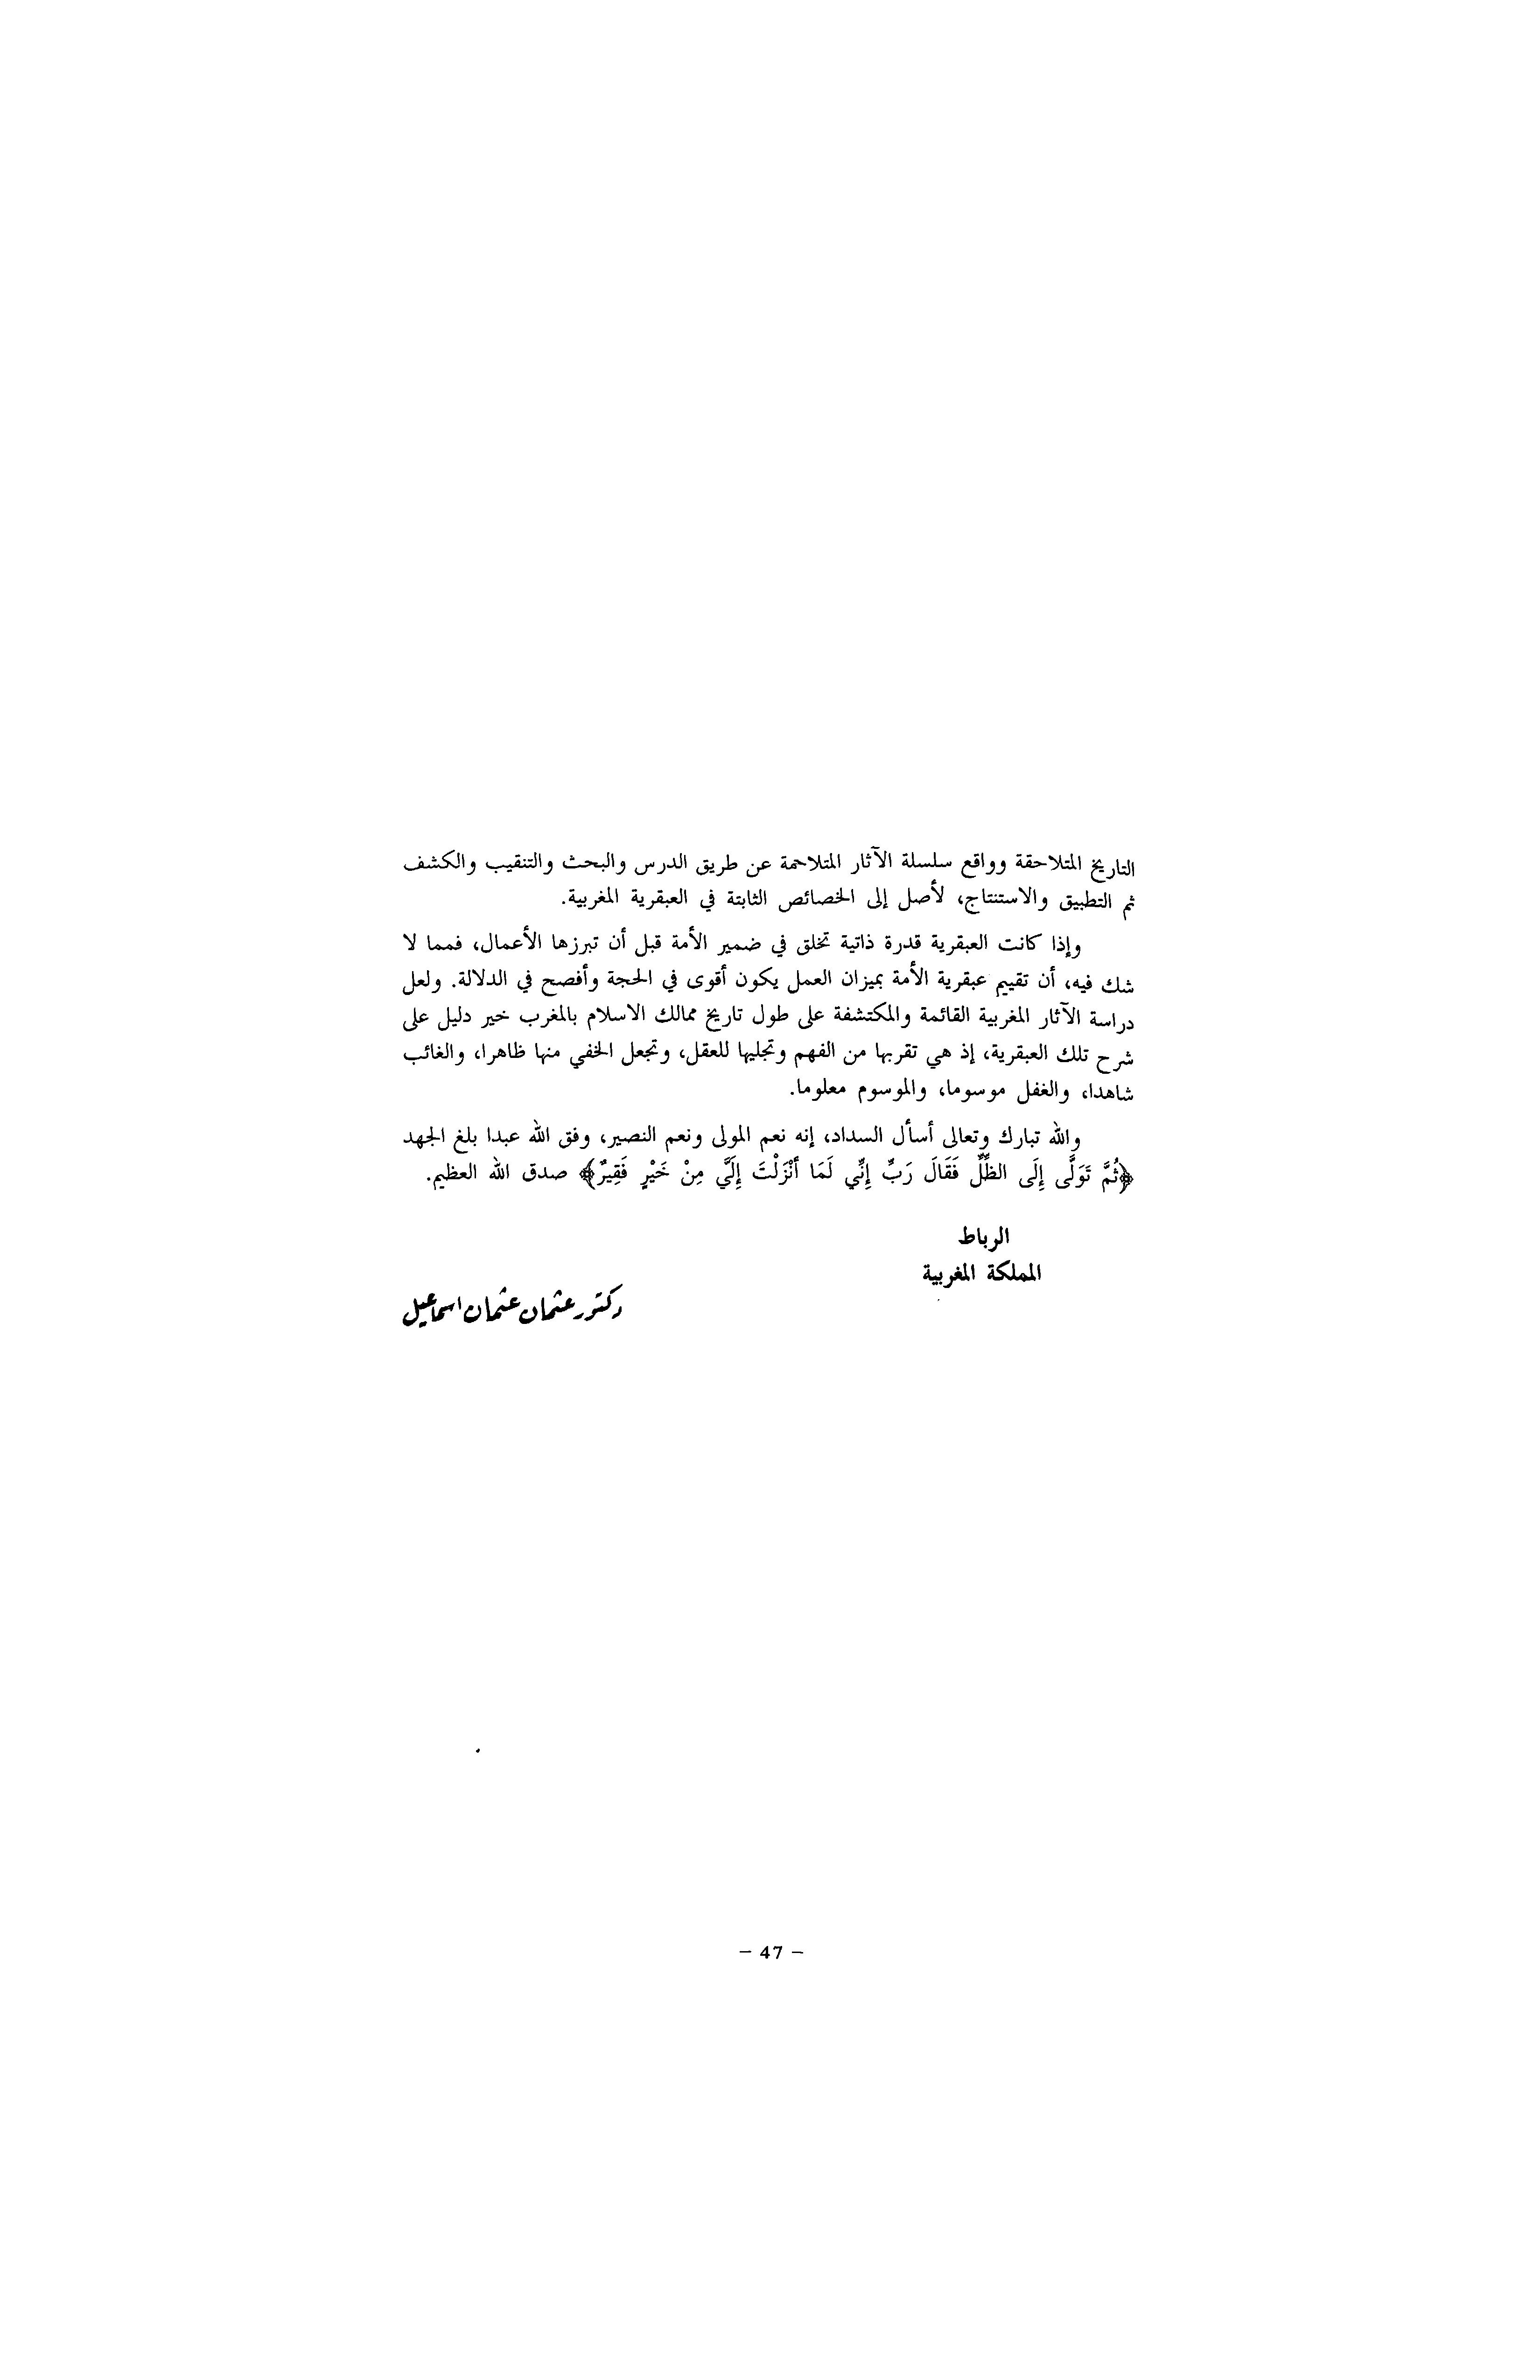 التاريخ المتلاحقة وواقع سلسلة الآثار المتلاحمة عن طريق الدرس والبحث والتنقيب والكشف
ثم التطبيق والاستنتاج، لأصل إلى الخصائص الثابتة في العبقرية المغربية.
وإذا كانت العبقرية قدرة ذاتية تخلق في ضمير الأمة قبل أن تبرزها الأعمال، فمما لا
شك فيه، أن تقييم عبقرية الأمة بميزان العمل يكون أقوى في الحجة وأفصح في الدلالة. ولعل
دراسة الآثار المغربية القائمة والمكتشفة على طول تاريخ ممالك الاسلام بالمغرب خير دليل على
شرح تلك العبقرية، إذ هي تقربها من الفهم وتجليها للعقل، وتجعل الخفي منها ظاهرا، والغائب
شاهدا، والغفل موسوما، والموسوم معلوما.
والله تبارك وتعالى أسأل السداد، إنه نعم المولى ونعم النصير، وفق الله عبدا بلغ الجهد
﴿ثُمَّ تَوَلَّى إِلَى الظِّلِّ فَقَالَ رَبِّ إِنِّي لَمَا أَنْزَلْتَ إِلَيَّ مِنْ خَيْرٍ فَقِيرٌ﴾ صدق الله العظيم.
الرباط
المملكة المغربية
دكتور عثمان عثمان اسماعيل
– 47 –